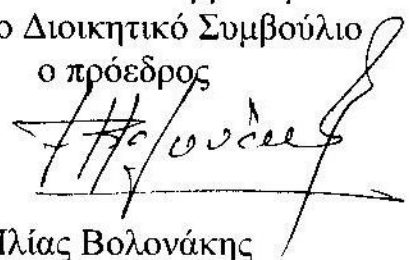 ο Διοικητικό Συμβούλιο
ο πρόεδρος
Ηλίας Βολονάκης